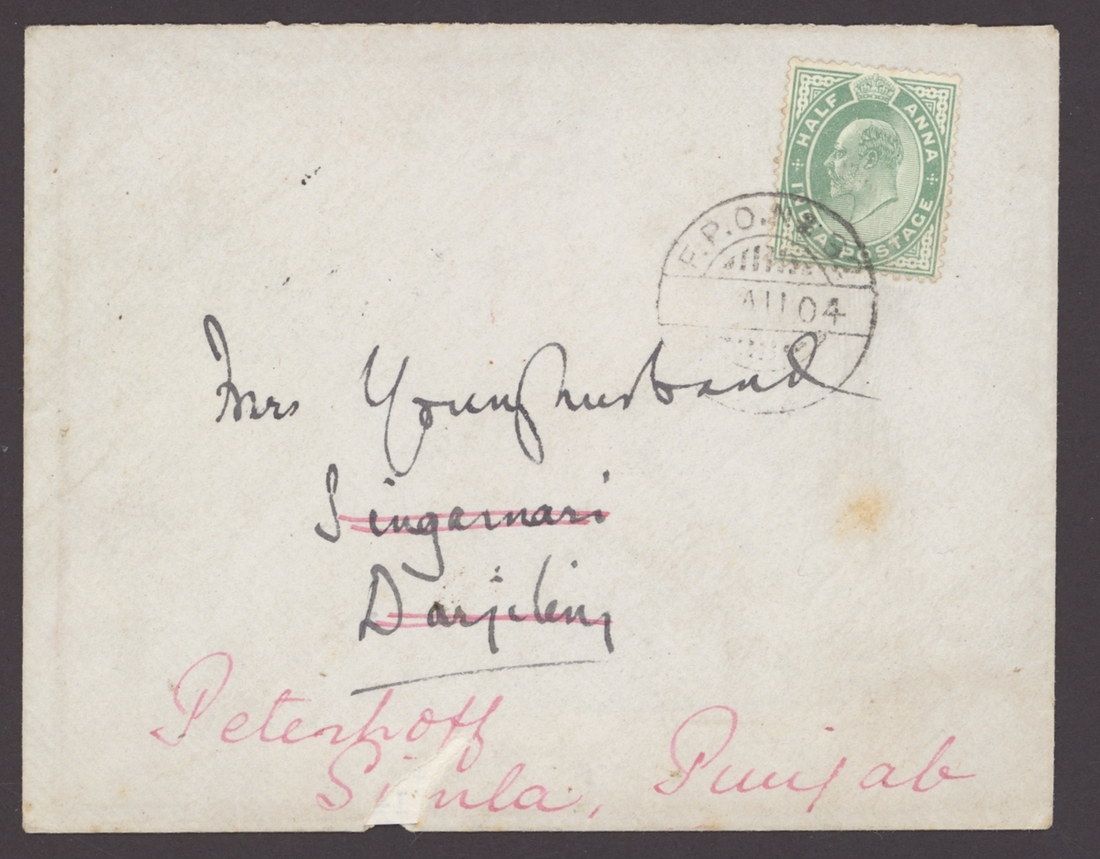 HALF ANNA
INDIA POSTAGE
F.P.O. No
04
Mrs Younghusband
Singamari
Darjeeling
Peterhoff
Simla, Punjab